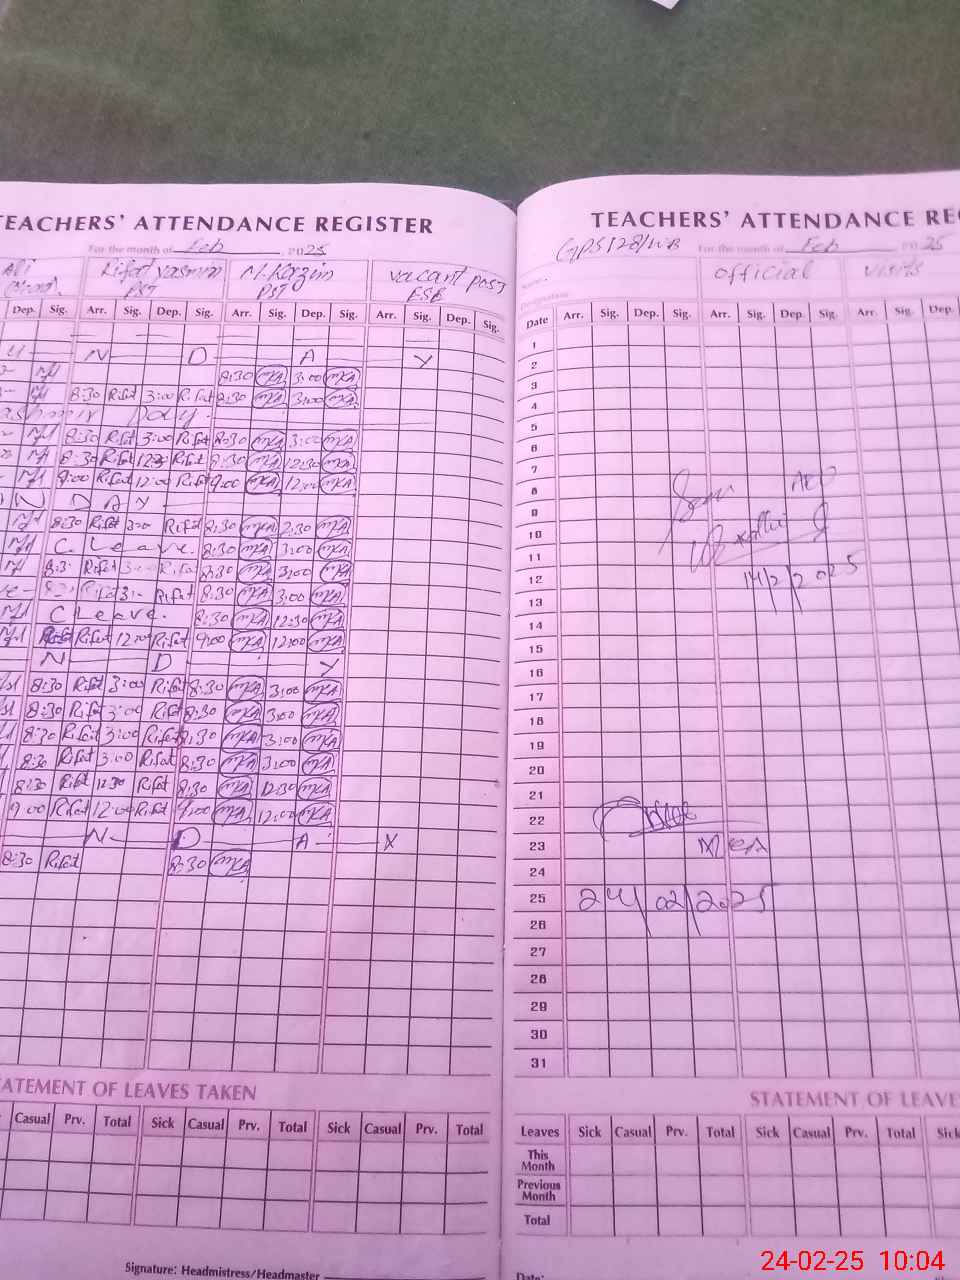 TEACHERS' ATTENDANCE REGISTER
For the month of Feb 2025
Ali
Rifat Yasmin
PST
M. Kazim
PST
vacant post
ESE
Dep. Sig. Arr. Sig. Dep. Sig. Arr. Sig. Dep. Sig. Arr. Sig. Dep. Sig.
N D A Y
8:30 MKA 3:00 MKA
8:30 Rifat 3:00 Rifat 8:30 MKA 3:00 MKA
Day
8:30 Rifat 3:00 Rifat 8:30 MKA 3:00 MKA
8:30 Rifat 12:30 Rifat 8:30 MKA 12:30 MKA
9:00 Rifat 12:00 Rifat 9:00 MKA 12:00 MKA
N D A Y
8:30 Rifat Rifat 8:30 MKA 2:30 MKA
C. Leave. 8:30 MKA 3:00 MKA
Rifat 8:30 MKA 3:00 MKA
Rifat 8:30 MKA 3:00 MKA
C Leave. 8:30 MKA 12:30 MKA
Rifat 12:00 Rifat 9:00 MKA 12:00 MKA
N D Y
8:30 Rifat 3:00 Rifat 8:30 MKA 3:00 MKA
8:30 Rifat 3:00 Rifat 8:30 MKA 3:00 MKA
8:30 Rifat 3:00 Rifat 8:30 MKA 3:00 MKA
8:30 Rifat 3:00 Rifat 8:30 MKA 3:00 MKA
8:30 Rifat 12:30 Rifat 8:30 MKA 12:30 MKA
9:00 Rifat 12:00 Rifat 9:00 MKA 12:00 MKA
N D A Y
8:30 Rifat 8:30 MKA
STATEMENT OF LEAVES TAKEN
Casual Prv. Total Sick Casual Prv. Total Sick Casual Prv. Total
Signature: Headmistress/Headmaster
TEACHERS' ATTENDANCE
GPS 128/WB For the month of Feb 2025
Name.
Designation
official visits
Date Arr. Sig. Dep. Sig. Arr. Sig. Dep. Sig. Arr. Sig. Dep.
1
2
3
4
5
6
7
8
9
10
11
12
13
14
15
16
17
18
19
20
21
22
23
24
25
26
27
28
29
30
31
14/2/2025
MEA
24/02/2025
STATEMENT OF LEAVES
Leaves Sick Casual Prv. Total Sick Casual Prv. Total Sick
This Month
Previous Month
Total
Date:
24-02-25 10:04